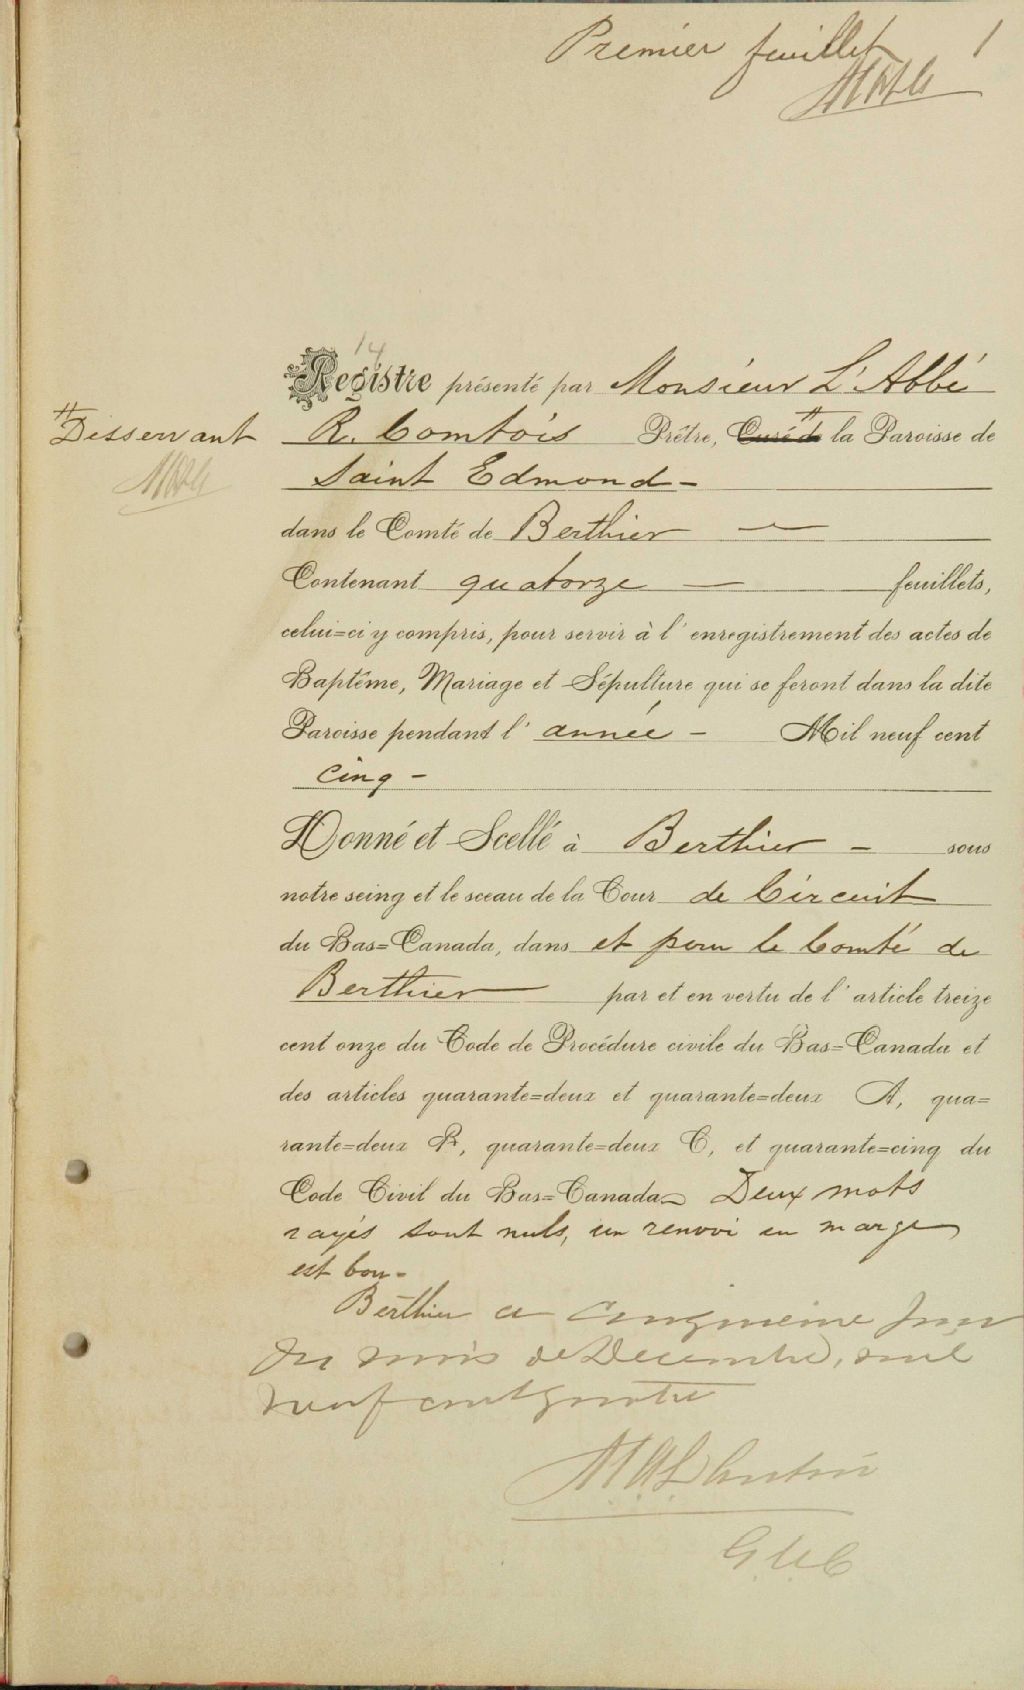 Premier feuillet 1
14
Registre présenté par Monsieur L'Abbé
#
Desservant R. Comtois Prêtre, Curé de # la Paroisse de
Saint Edmond -
dans le Comté de Berthier —
Contenant quatorze — feuillets,
celui=ci y compris, pour servir à l'enregistrement des actes de
Baptême, Mariage et Sépulture qui se feront dans la dite
Paroisse pendant l' année - Mil neuf cent
cinq -
Donné et Scellé à Berthier - sous
notre seing et le sceau de la Cour de Circuit
du Bas=Canada, dans et pour le Comté de
Berthier par et en vertu de l'article treize
cent onze du Code de Procédure civile du Bas=Canada et
des articles quarante=deux et quarante=deux A, qua=
rante=deux B, quarante=deux C, et quarante=cinq du
Code Civil du Bas=Canada Deux mots
rayés sont nuls, un renvoi en marge
est bon -
Berthier ce cinquième jour
du mois de Decembre, mil
neuf cent quatre
G.C.C